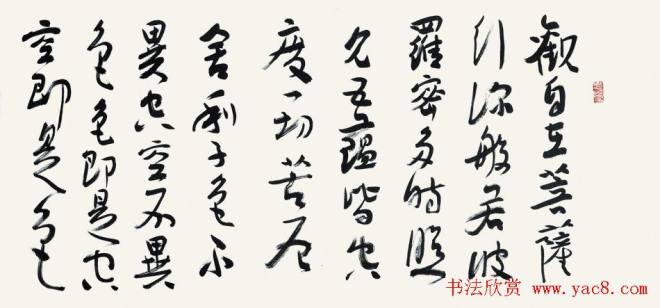 觀自在菩薩
行深般若波
羅密多時照
見五蘊皆空
度一切苦厄
舍利子色不
異空空不異
色色即是空
空即是色
书法欣赏
www.yac8.com